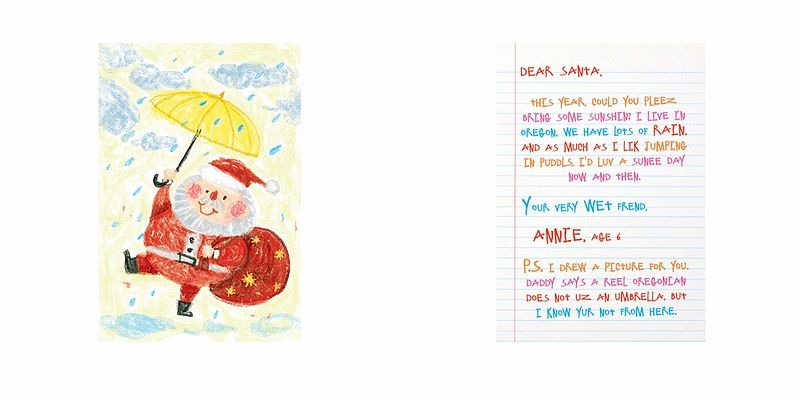 DEAR SANTA,
THIS YEAR, COULD YOU PLEEZ
BRING SOME SUNSHIN? I LIVE IN
OREGON. WE HAVE LOTS OF RAIN.
AND AS MUCH AS I LIK JUMPING
IN PUDDLS, I'D LUV A SUNEE DAY
NOW AND THEN.
YOUR VERY WET FREND,
ANNIE, AGE 6
P.S. I DREW A PICTURE FOR YOU.
DADDY SAYS A REEL OREGONIAN
DOES NOT UZ AN UMBRELLA. BUT
I KNOW YUR NOT FROM HERE.